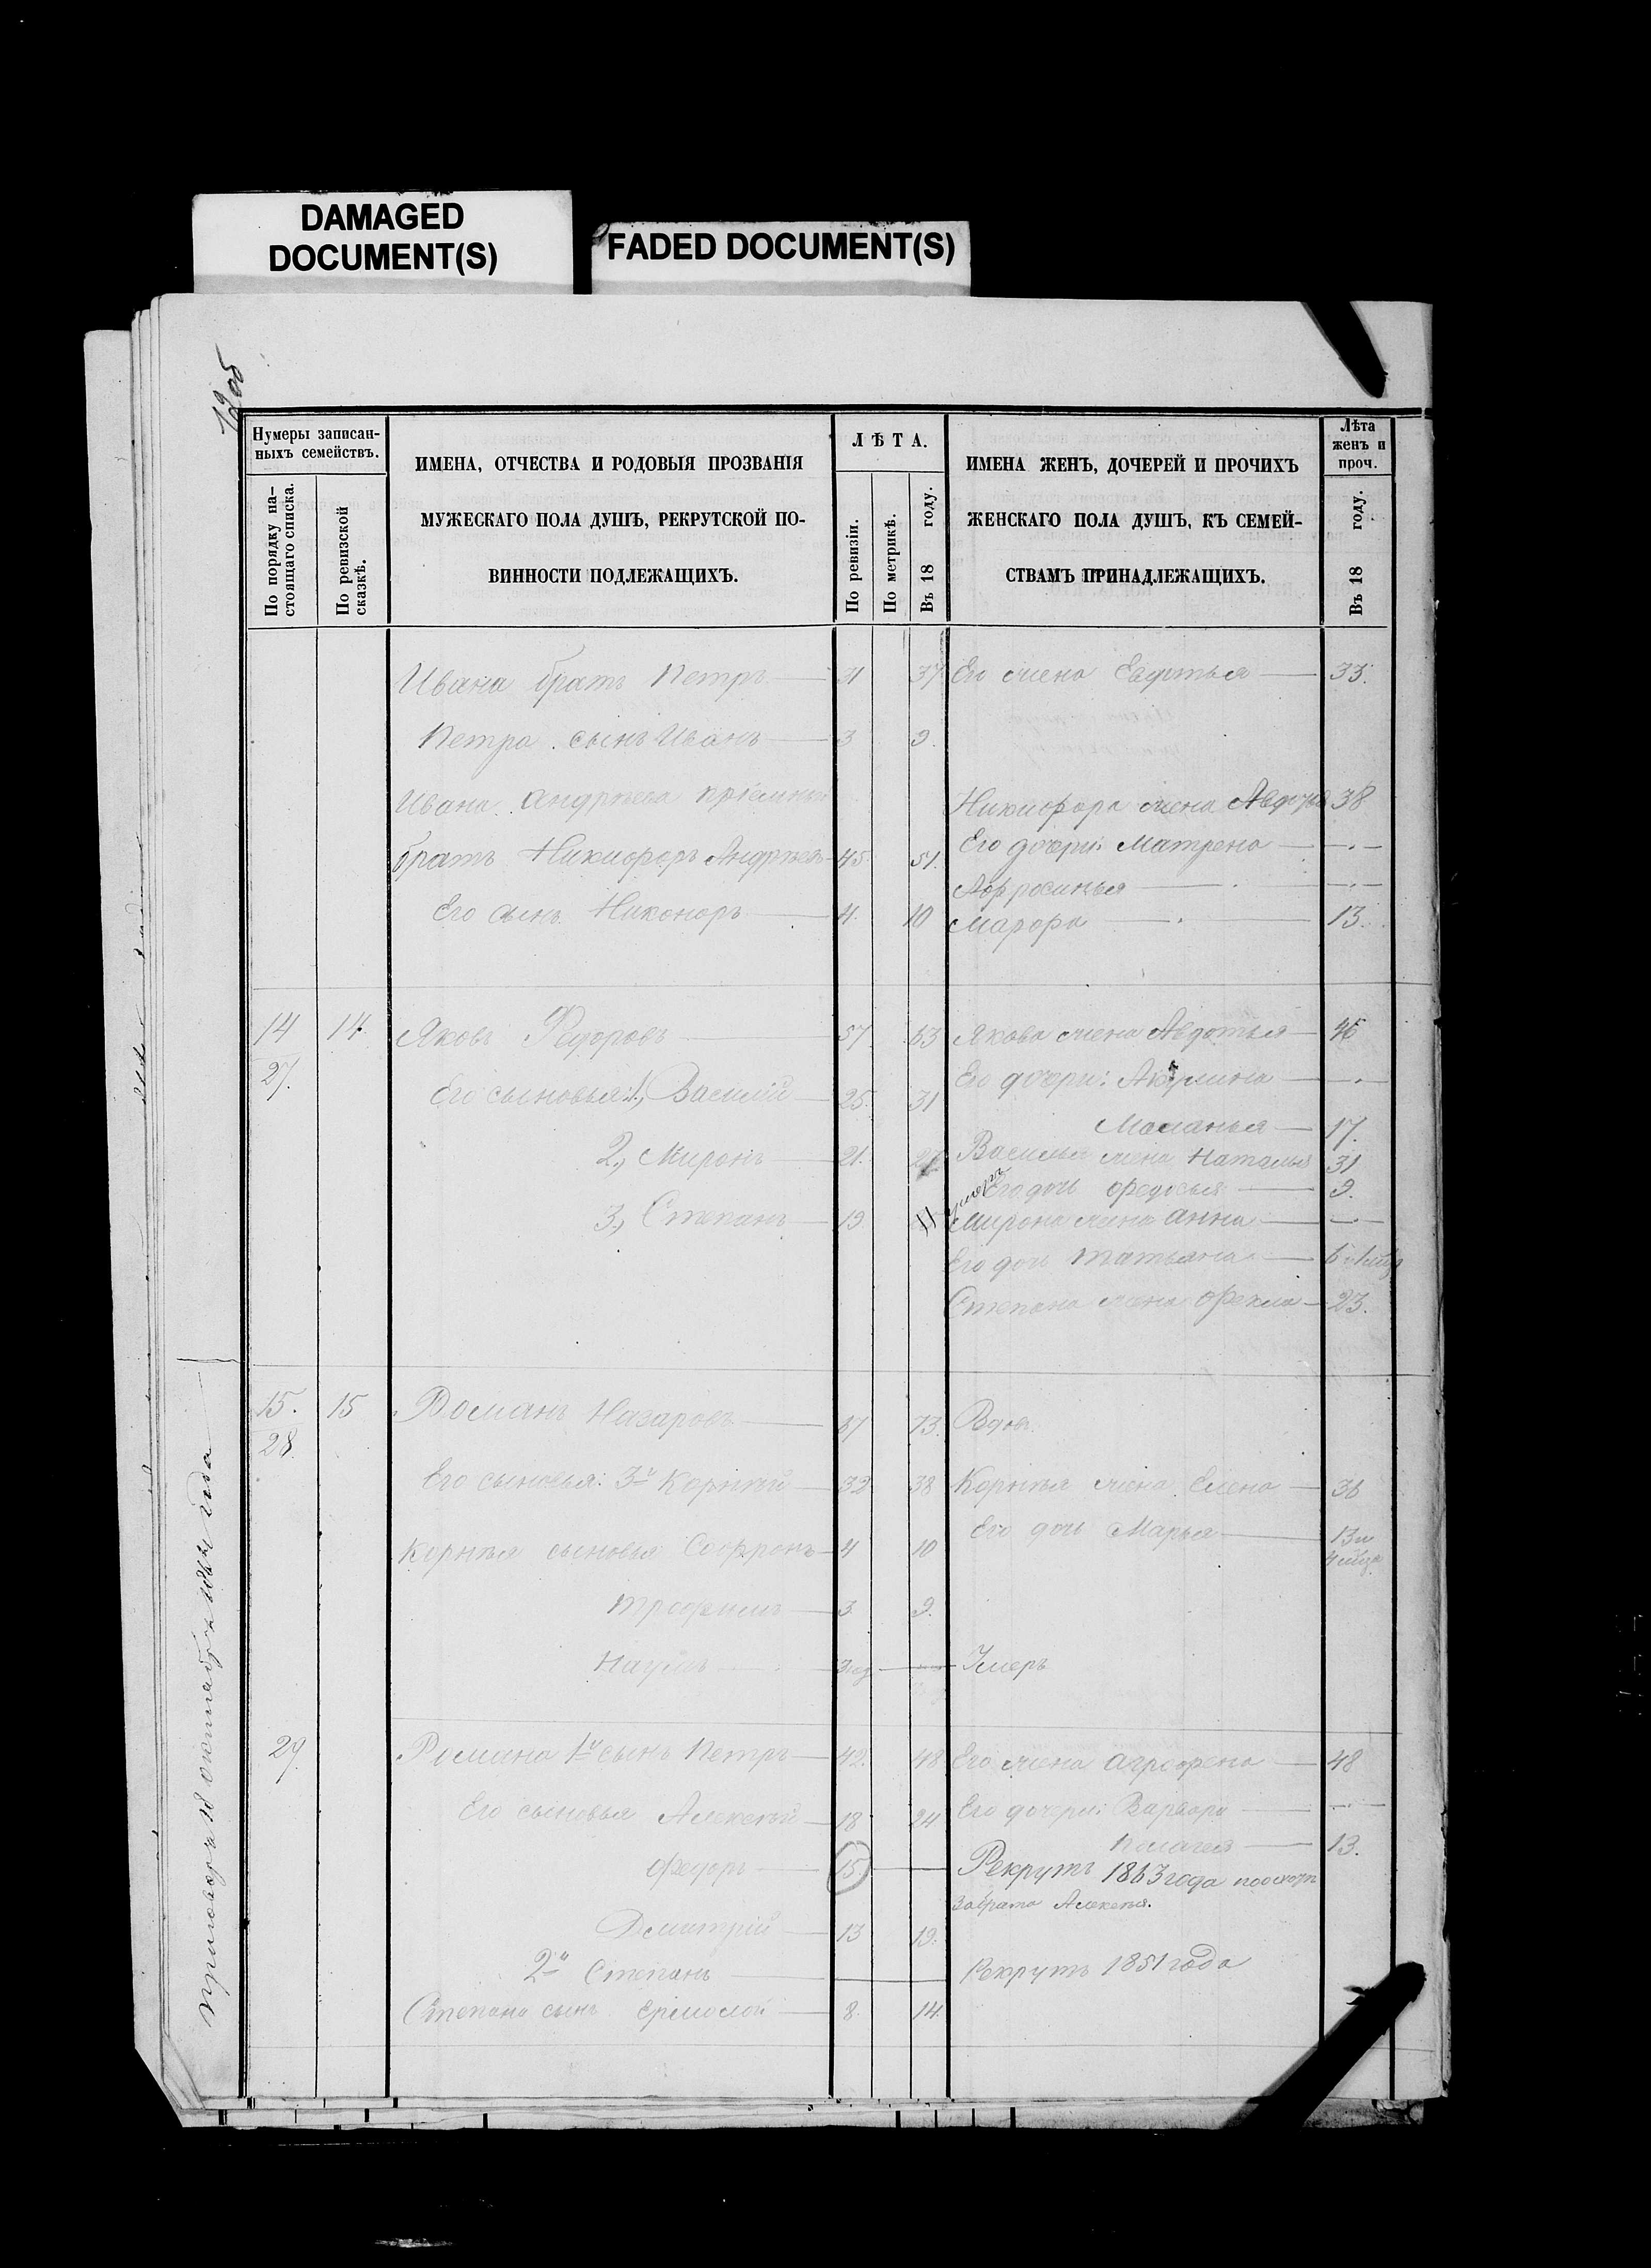 DAMAGED
DOCUMENT(S)
FADED DOCUMENT(S)
19об
Нумеры записан-
ныхъ семействъ.
По порядку на-
стоящаго списка.
По ревизской
сказкѣ.
ИМЕНА, ОТЧЕСТВА И РОДОВЫЯ ПРОЗВАНІЯ
МУЖЕСКАГО ПОЛА ДУШЪ, РЕКРУТСКОЙ ПО-
ВИННОСТИ ПОДЛЕЖАЩИХЪ.
ЛѢТА.
По ревизіи.
По метрикѣ.
Въ 18 году.
ИМЕНА ЖЕНЪ, ДОЧЕРЕЙ И ПРОЧИХЪ
ЖЕНСКАГО ПОЛА ДУШЪ, КЪ СЕМЕЙ-
СТВАМЪ ПРИНАДЛЕЖАЩИХЪ.
Лѣта
женъ и
проч.
Въ 18 году.
Ивана братъ Петръ 31 37 Его жена Евдотья 33.
Петра сынъ Иванъ 3 9.
Ивана Андрѣева пріемный
Никифора жена Авдотья 38
братъ Никифоръ Андреевъ 45 51.
Его дочери: Матрена
Афросинья
Его сынъ Никоноръ 4. 10
Марфа 13.
14 14. Яковъ Федоровъ 57 63 Якова жена Авдотья 46
27.
Его дочери: Акулина
Его сыновья: 1, Василій 25. 31
Маланья 17.
2, Миронъ 21. 27
Василья жена Наталья 31
Его дочь Федосья 9.
умеръ
3, Степанъ 19
Мирона жена Анна
Его дочь Татьяна
Степана жена Фекла 23.
15. 15 Романъ Назаровъ 67 73. Вдовъ
28.
Его сыновья: 3й Корнѣй 32 38 Корнѣя жена Елена 36
Его дочь Марья 13 и
4 мѣся
Корнѣя сыновья Софронъ 4 10
Трофимъ 3. 9.
Наумъ Умеръ
29. Романа 1й сынъ Петръ 42. 48 Его жена Агрофена 48
Его сыновья Алексѣй 18 24 Его дочери: Варвара
Палагея 13.
Федоръ 15. Рекрутъ 1863 года
за брата Алексѣя.
Дмитрій 13 19.
2й Степанъ Рекрутъ 1851 года
Степана сынъ Ермолай 8. 14